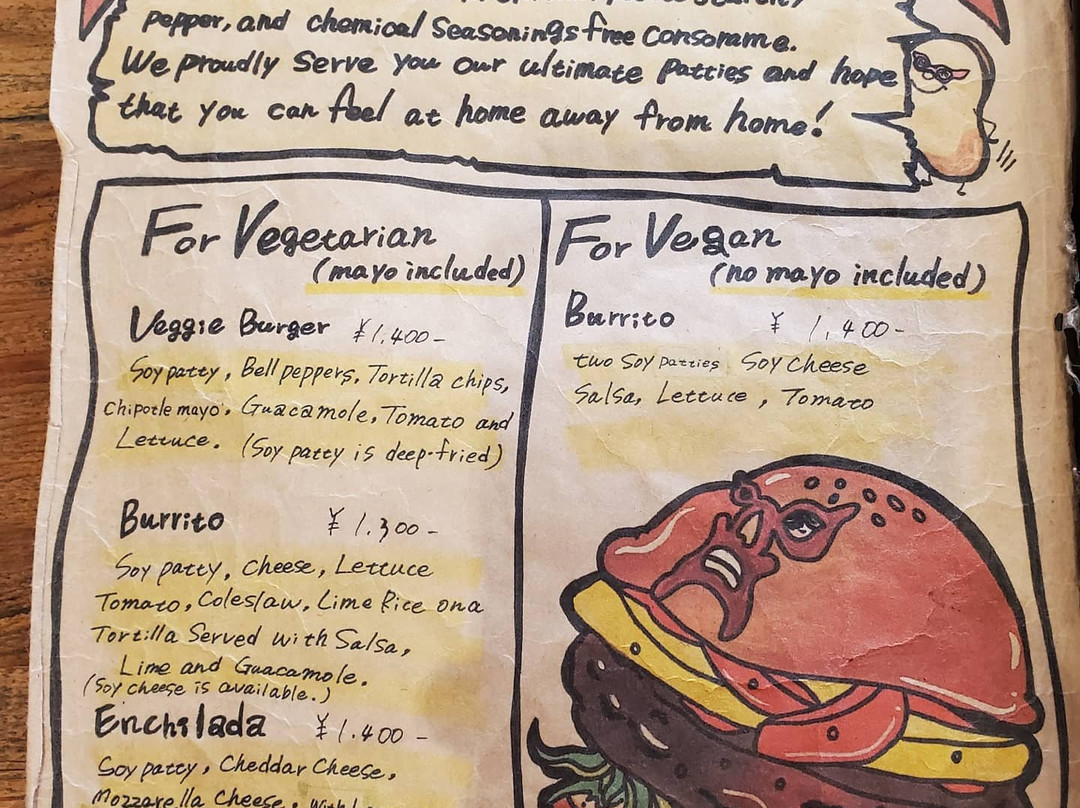 pepper, and chemical seasonings free consomme.
We proudly serve you our ultimate patties and hope
that you can feel at home away from home!
For Vegetarian
(mayo included)
Veggie Burger ¥1,400-
Soy patty, Bell peppers, Tortilla chips,
Chipotle mayo, Guacamole, Tomato and
Lettuce. (Soy patty is deep-fried)
Burrito ¥1.300-
Soy patty, cheese, Lettuce
Tomato, Coleslaw, Lime Rice on a
Tortilla Served with Salsa,
Lime and Guacamole.
(Soy cheese is available.)
Enchilada ¥1.400-
Soy patty, Cheddar Cheese,
Mozzarella Cheese,
For Vegan
(no mayo included)
Burrito ¥ 1,400-
two soy patties Soy cheese
Salsa, Lettuce, Tomato